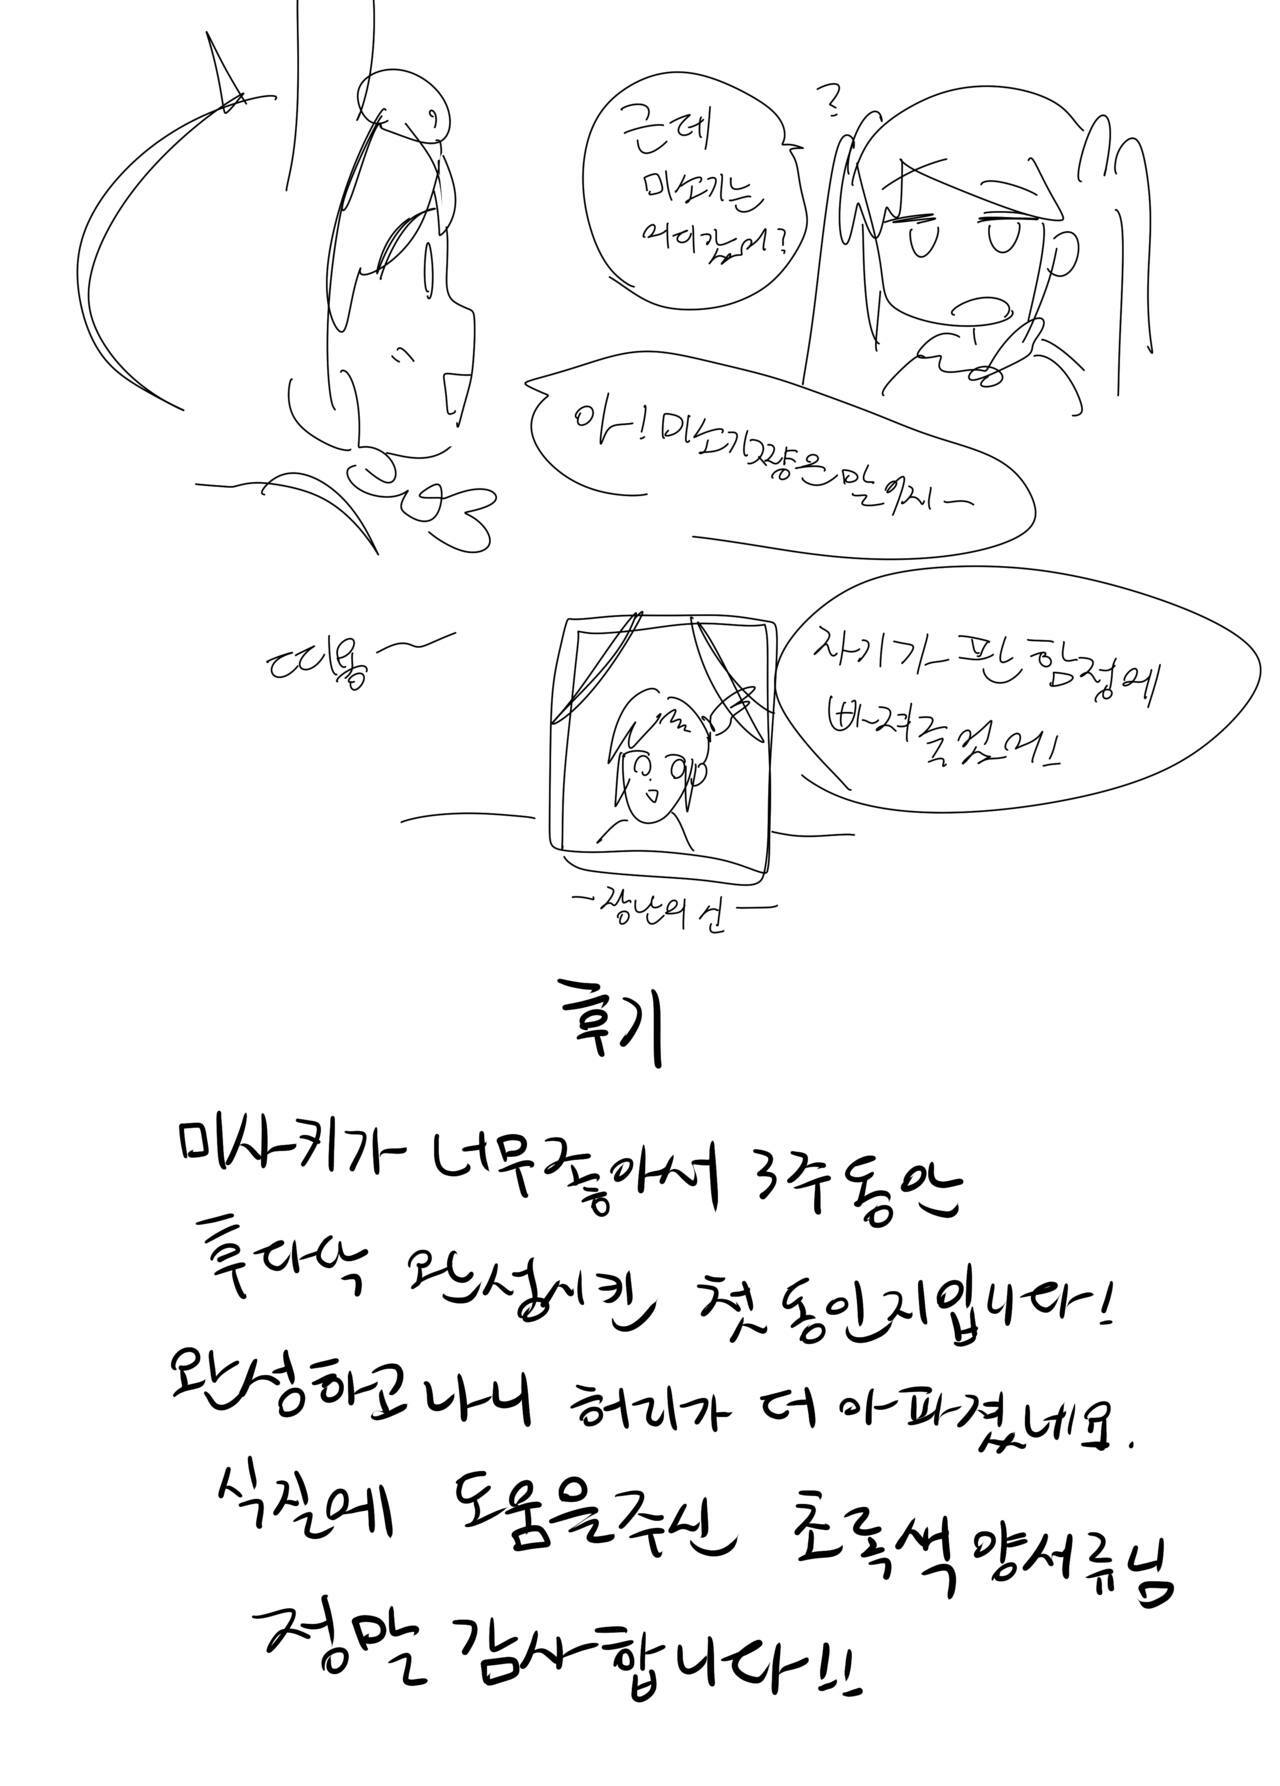 ?
근데
미소기는
어디갔어?
아! 미소기쨩은 말이지~
띠용~
자기가 판 함정에
빠져죽었어!
-장난의 신-
후기
미사키가 너무좋아서 3주동안
후다닥 완성시킨 첫 동인지입니다!
완성하고나니 허리가 더 아파졌네요.
식질에 도움을주신 초록색 양서류님
정말 감사합니다!!